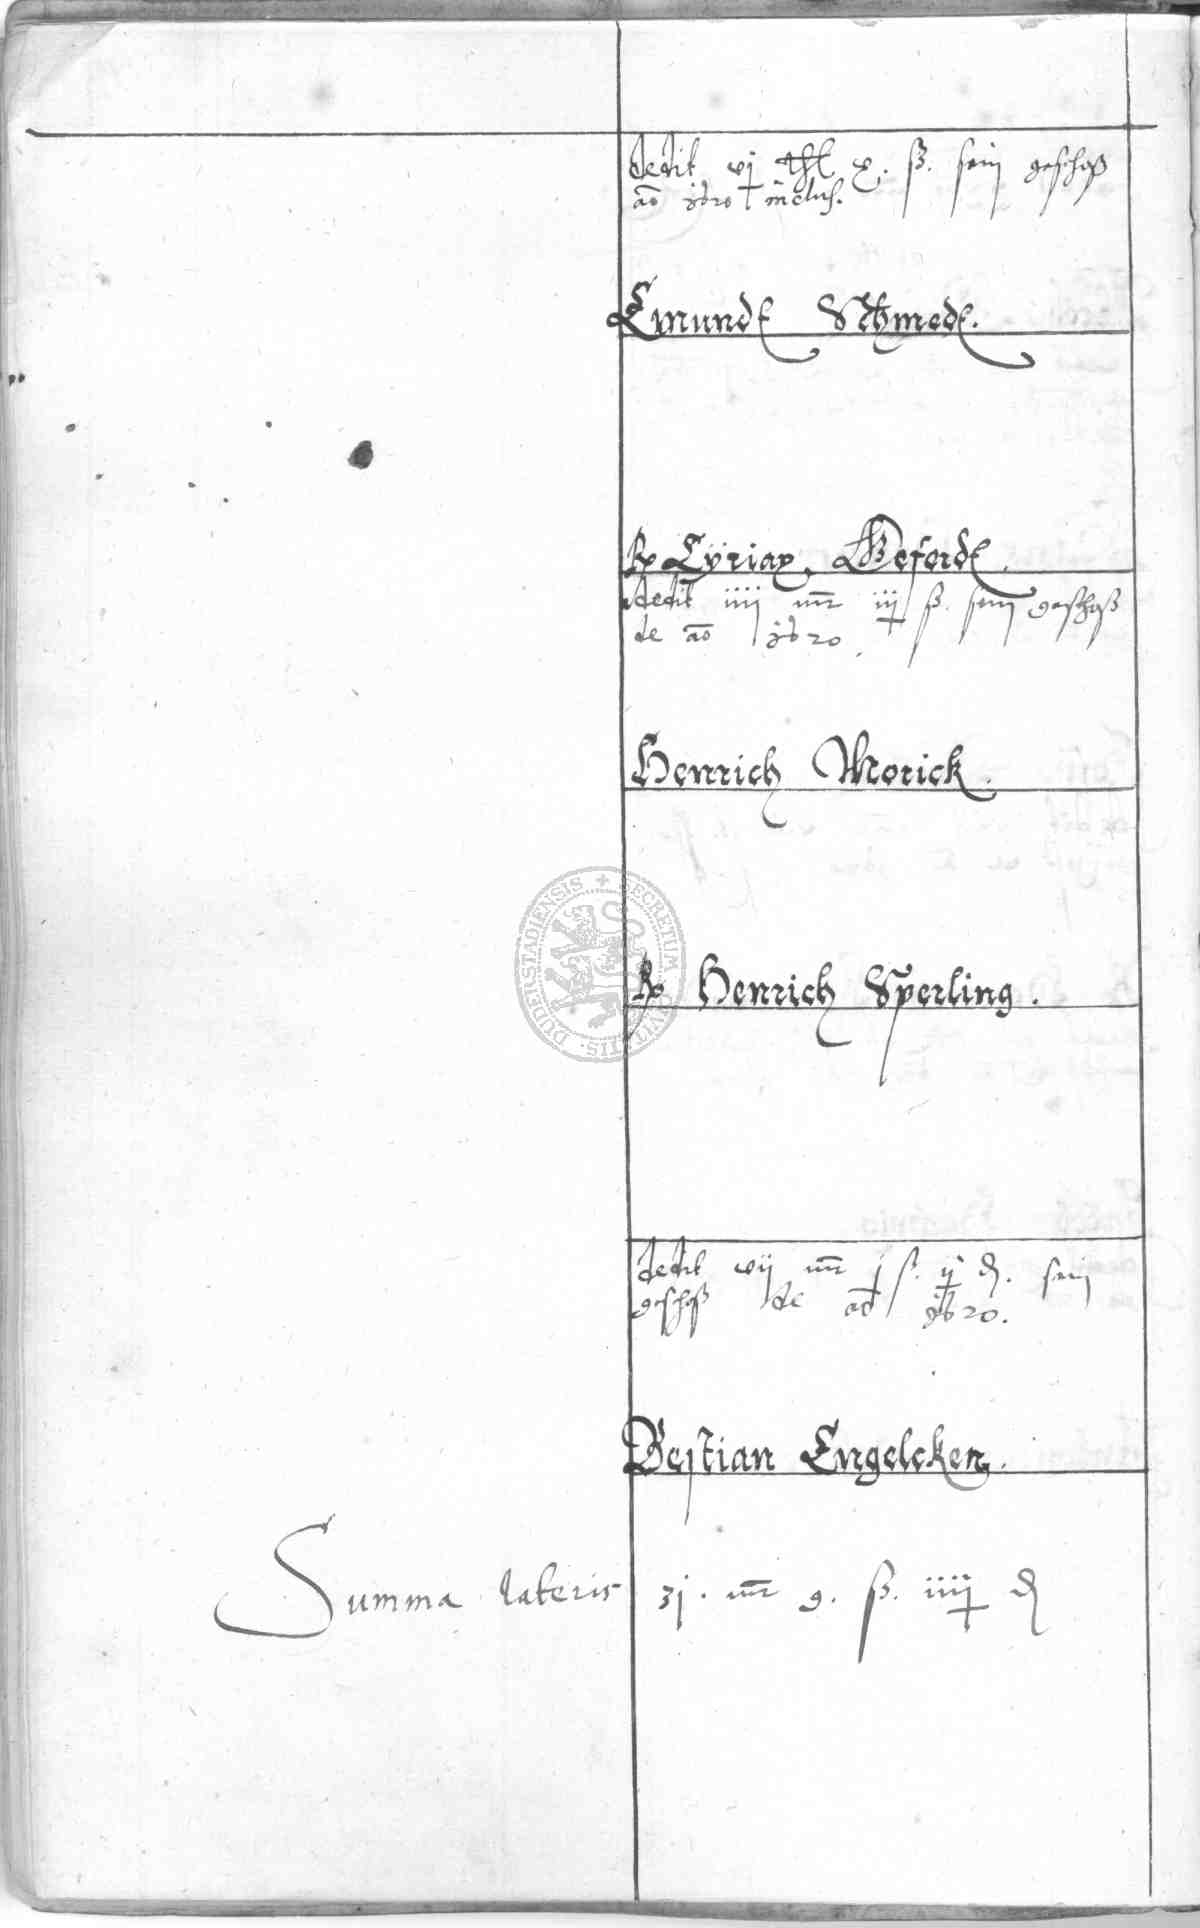 dedit vj thl x. ß. sein geschoß
ao 1620 inclus.
Emundt Schmedt.
Rp Cÿriax Geferdt.
dedit iiij mr iij ß. sein geschoß
de ao 1620.
Henrich Morick.
Rp Henrich Sperling.
dedit vij mr j ß. ij d. sein
geschoß de ao 1620.
Bestian Engelcken.
Summa lateris 31. mr 9. ß. iiij d
SECRETUM CIVITATIS DUDERSTADIENSIS